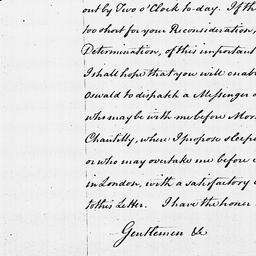 out by Two o'Clock to-day. If th
too short for your Reconsideration,
Determination, of this important
I shall hope that you will enab
Oswald to dispatch a Messenger a
who may be with me before Mor
Chantilly, where I propose sleep
or who may overtake me before
in London, with a satisfactory
to this Letter. I have the honor
Gentlemen &c